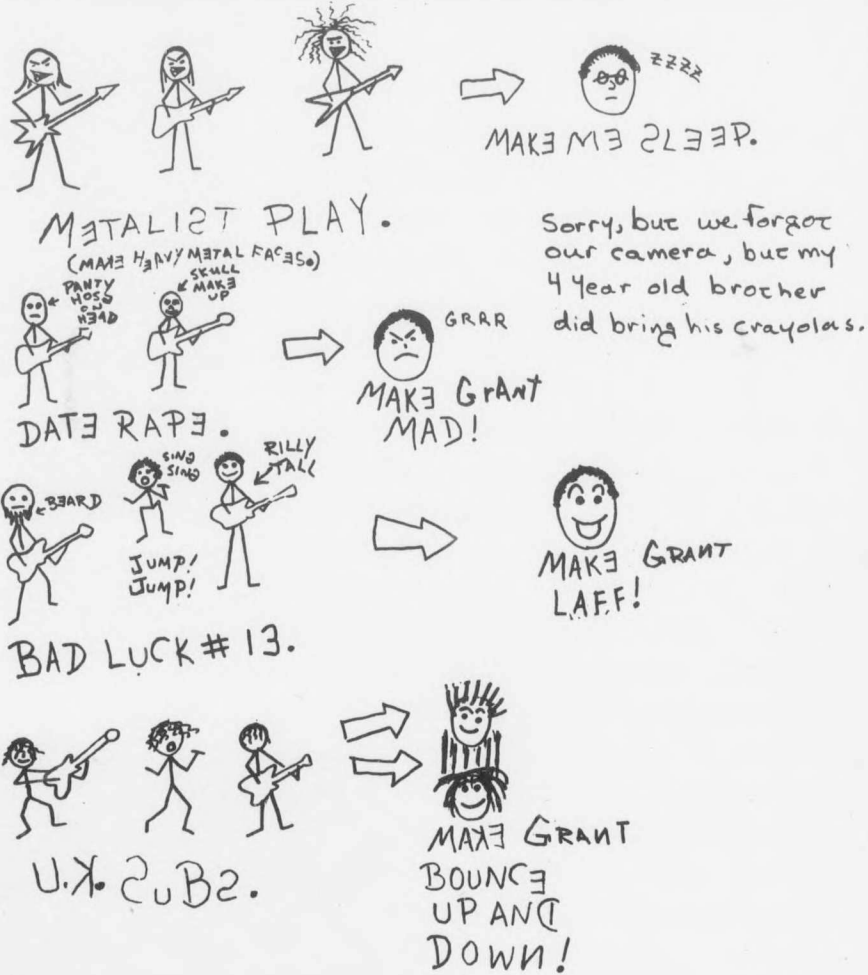 ZZZZ
MAKE ME SLEEP.
METALIST PLAY.
(MAKE HEAVY METAL FACES.)
Sorry, but we forgot
our camera, but my
4 Year old brother
did bring his crayolas.
PANTY
HOSE
ON
HEAD
SKULL
MAKE
UP
GRRR
MAKE GrANT
MAD!
DATE RAPE.
BEARD
SING
SING
RILLY
TALL
JUMP!
JUMP!
MAKE GRANT
LAFF!
BAD LUCK # 13.
U.K. SuBS.
MAKE GRANT
BOUNCE
UP AND
DOWN!